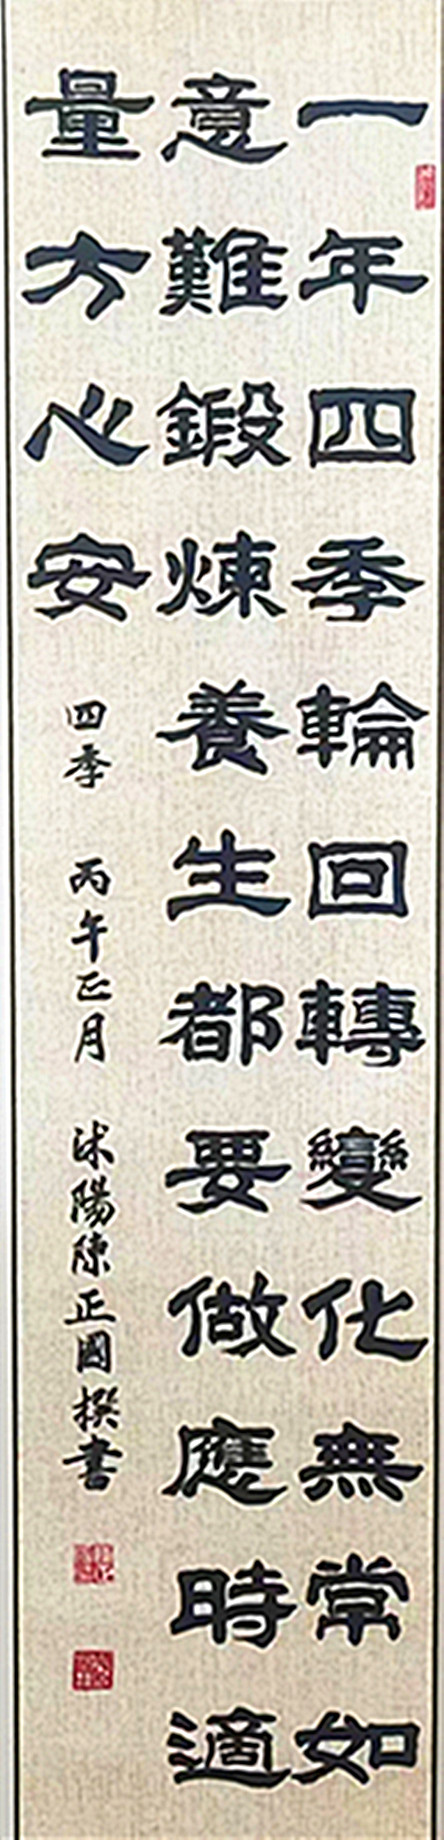 一年四季輪回轉變化無常如
意難鍛煉養生都要做應時適
量方心安
四季 丙午正月 沭陽陳正國撰書